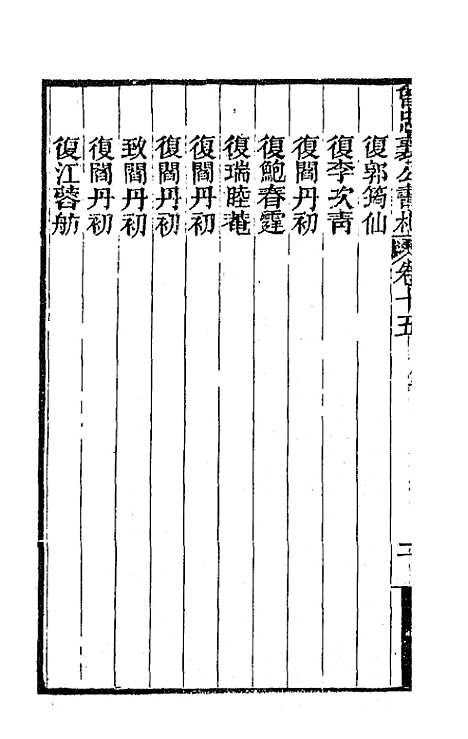 曾忠襄公書札 卷十五
復郭筠仙
復李次青
復閻丹初
復鮑春霆
復瑞睦菴
復閻丹初
復閻丹初
致閻丹初
復閻丹初
復江蓉舫